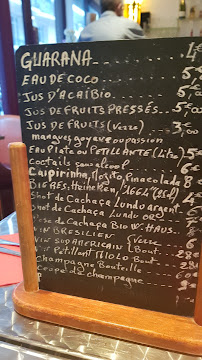 GUARANA 4€
EAU DE COCO 5,00
JUS D'AÇAÏ BIO 5,00
JUS DE FRUITS PRESSÉS
JUS DE FRUITS (Verre) 3,00
mangue, goyave ou passion
EAU Plate ou PETILLANTE (Litre)
Cocktails sans alcool
Caïpirinha, Mojito, Pinacolada 8
BIÈRES: Heineken, 1664 (25cl)
Shot de Cachaça Lundu argent
Shot de Cachaça Lundu OR
de Cachaça Bio W. HAUS
VIN BRESILIEN (Verre
VIN SUD AMERICAIN (Bout 28€
VIN Petillant NIOLO Bout
Champagne Bouteille
coupe de champagne 8€